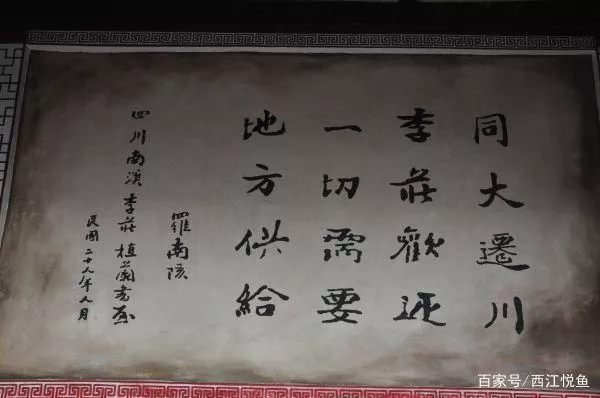 同大遷川
李莊歡迎
一切需要
地方供給
羅南陔
四川南溪李莊植蘭書屋
民國二十八年八月
百家号/西江悦鱼